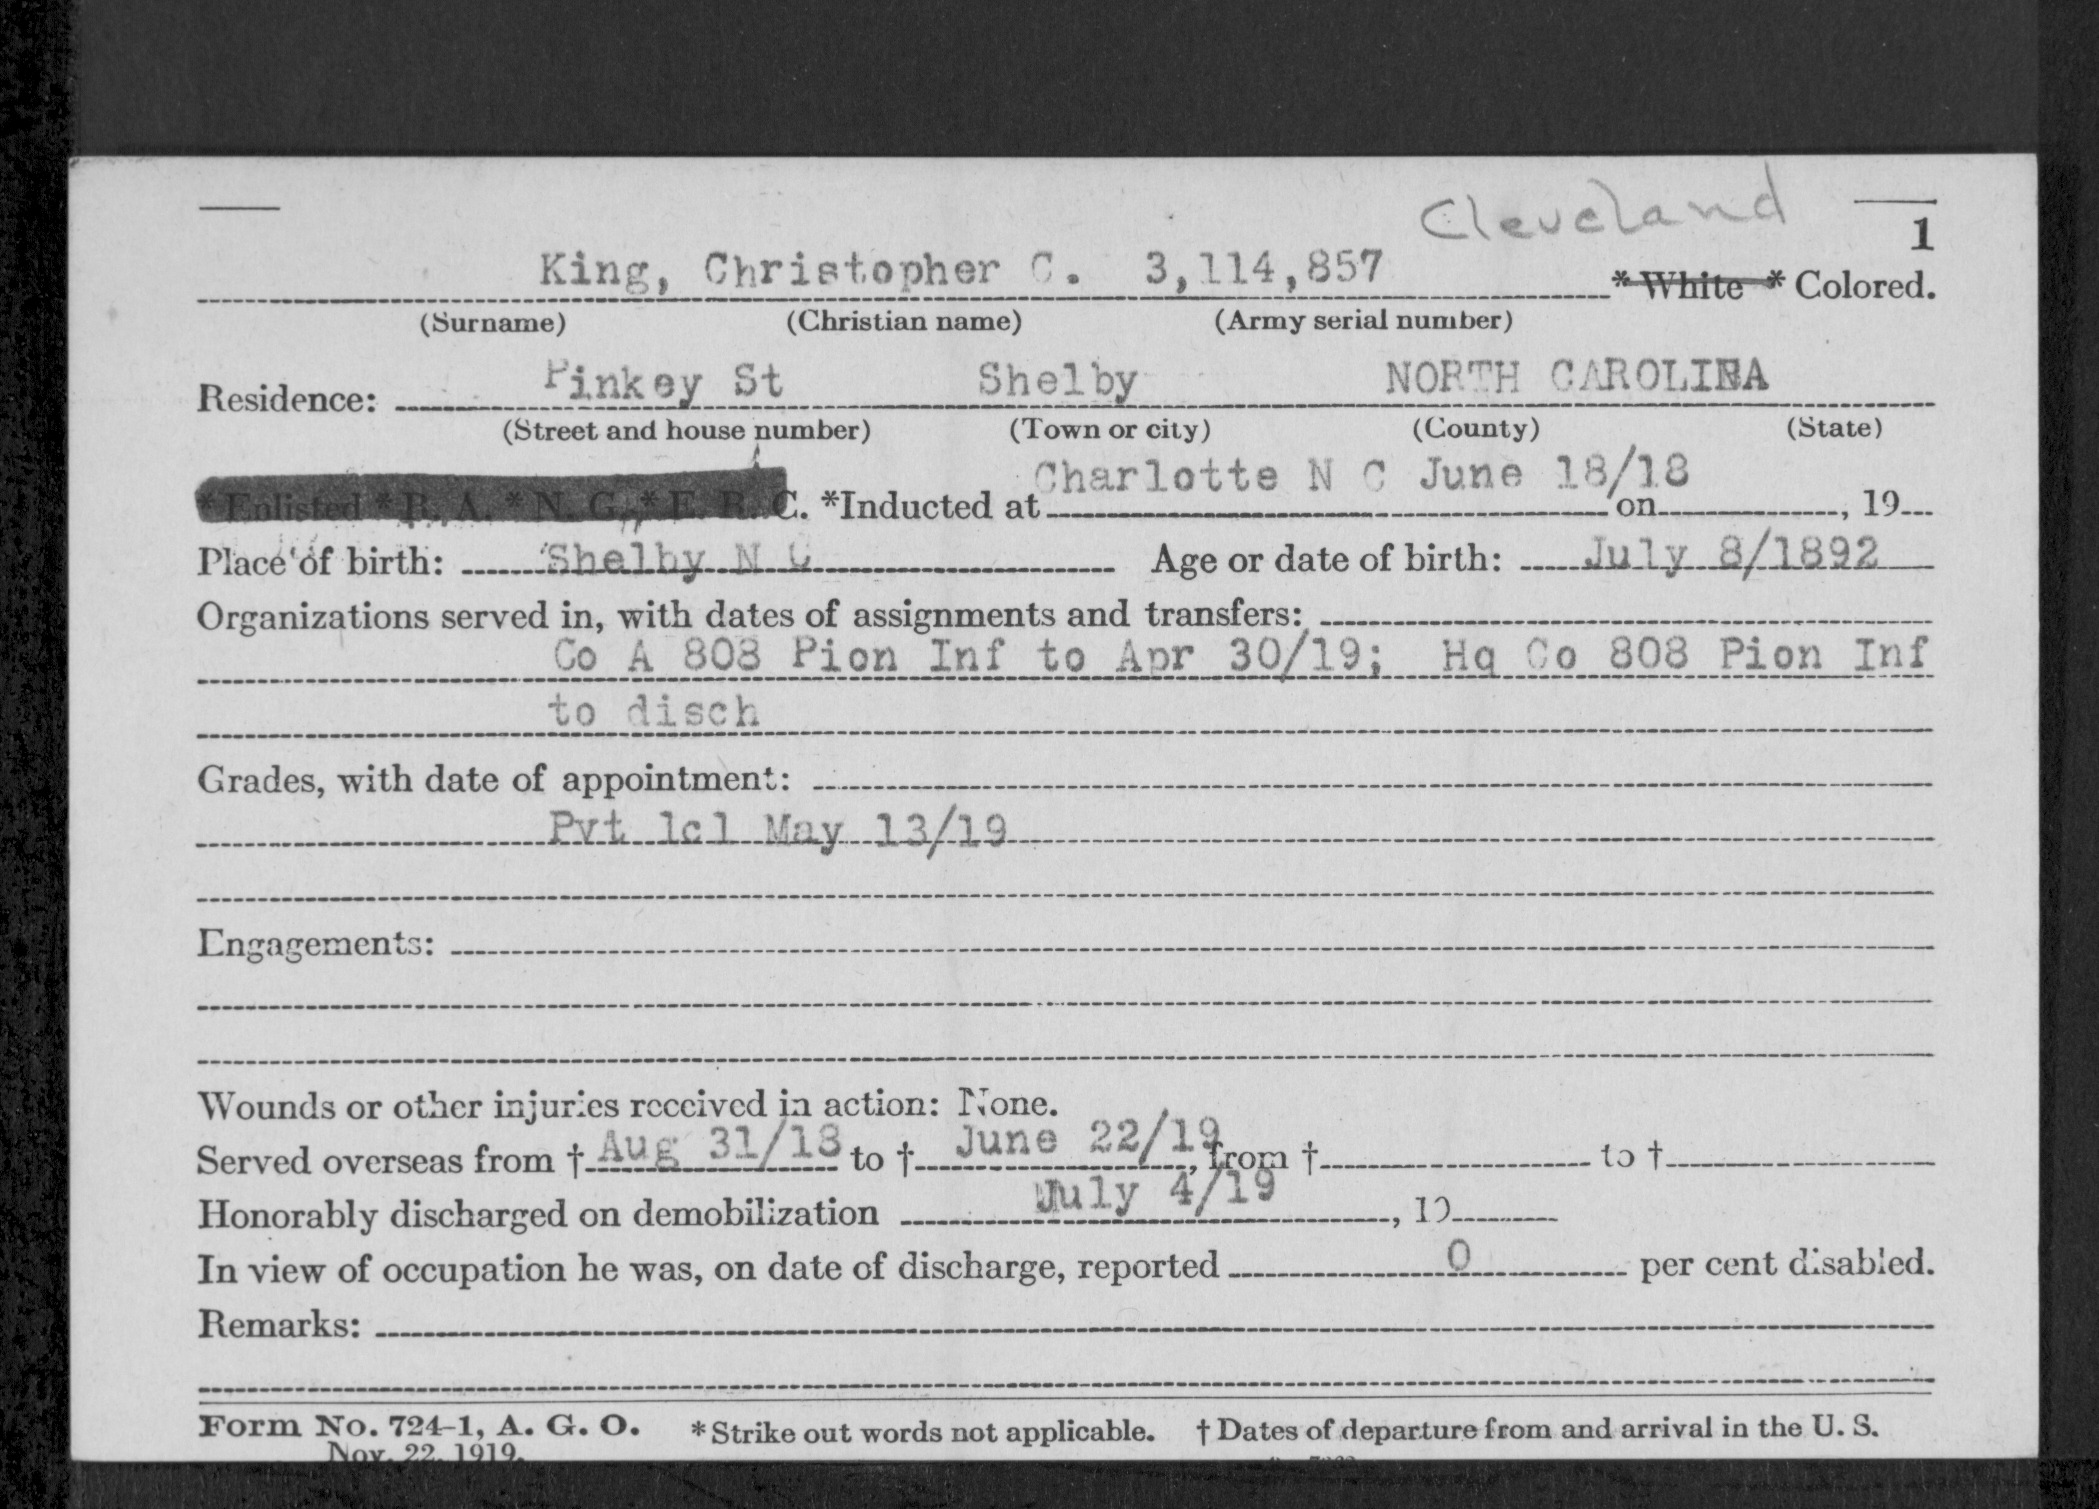 Cleveland
1
King, Christopher C. 3,114,857 * White * Colored.
(Surname) (Christian name) (Army serial number)
Residence: Pinkey St Shelby NORTH CAROLINA
(Street and house number) (Town or city) (County) (State)
* Enlisted * R. A. * N. G. * E. R. C. *Inducted at Charlotte N C June 18/18 on , 19
Place of birth: Shelby N C Age or date of birth: July 8/1892
Organizations served in, with dates of assignments and transfers:
Co A 808 Pion Inf to Apr 30/19; Hq Co 808 Pion Inf
to disch
Grades, with date of appointment:
Pvt 1cl May 13/19
Engagements:
Wounds or other injuries received in action: None.
Served overseas from † Aug 31/18 to † June 22/19, from † to †
Honorably discharged on demobilization July 4/19, 19
In view of occupation he was, on date of discharge, reported 0 per cent disabled.
Remarks:
Form No. 724-1, A. G. O. *Strike out words not applicable. † Dates of departure from and arrival in the U. S.
Nov. 22, 1919.